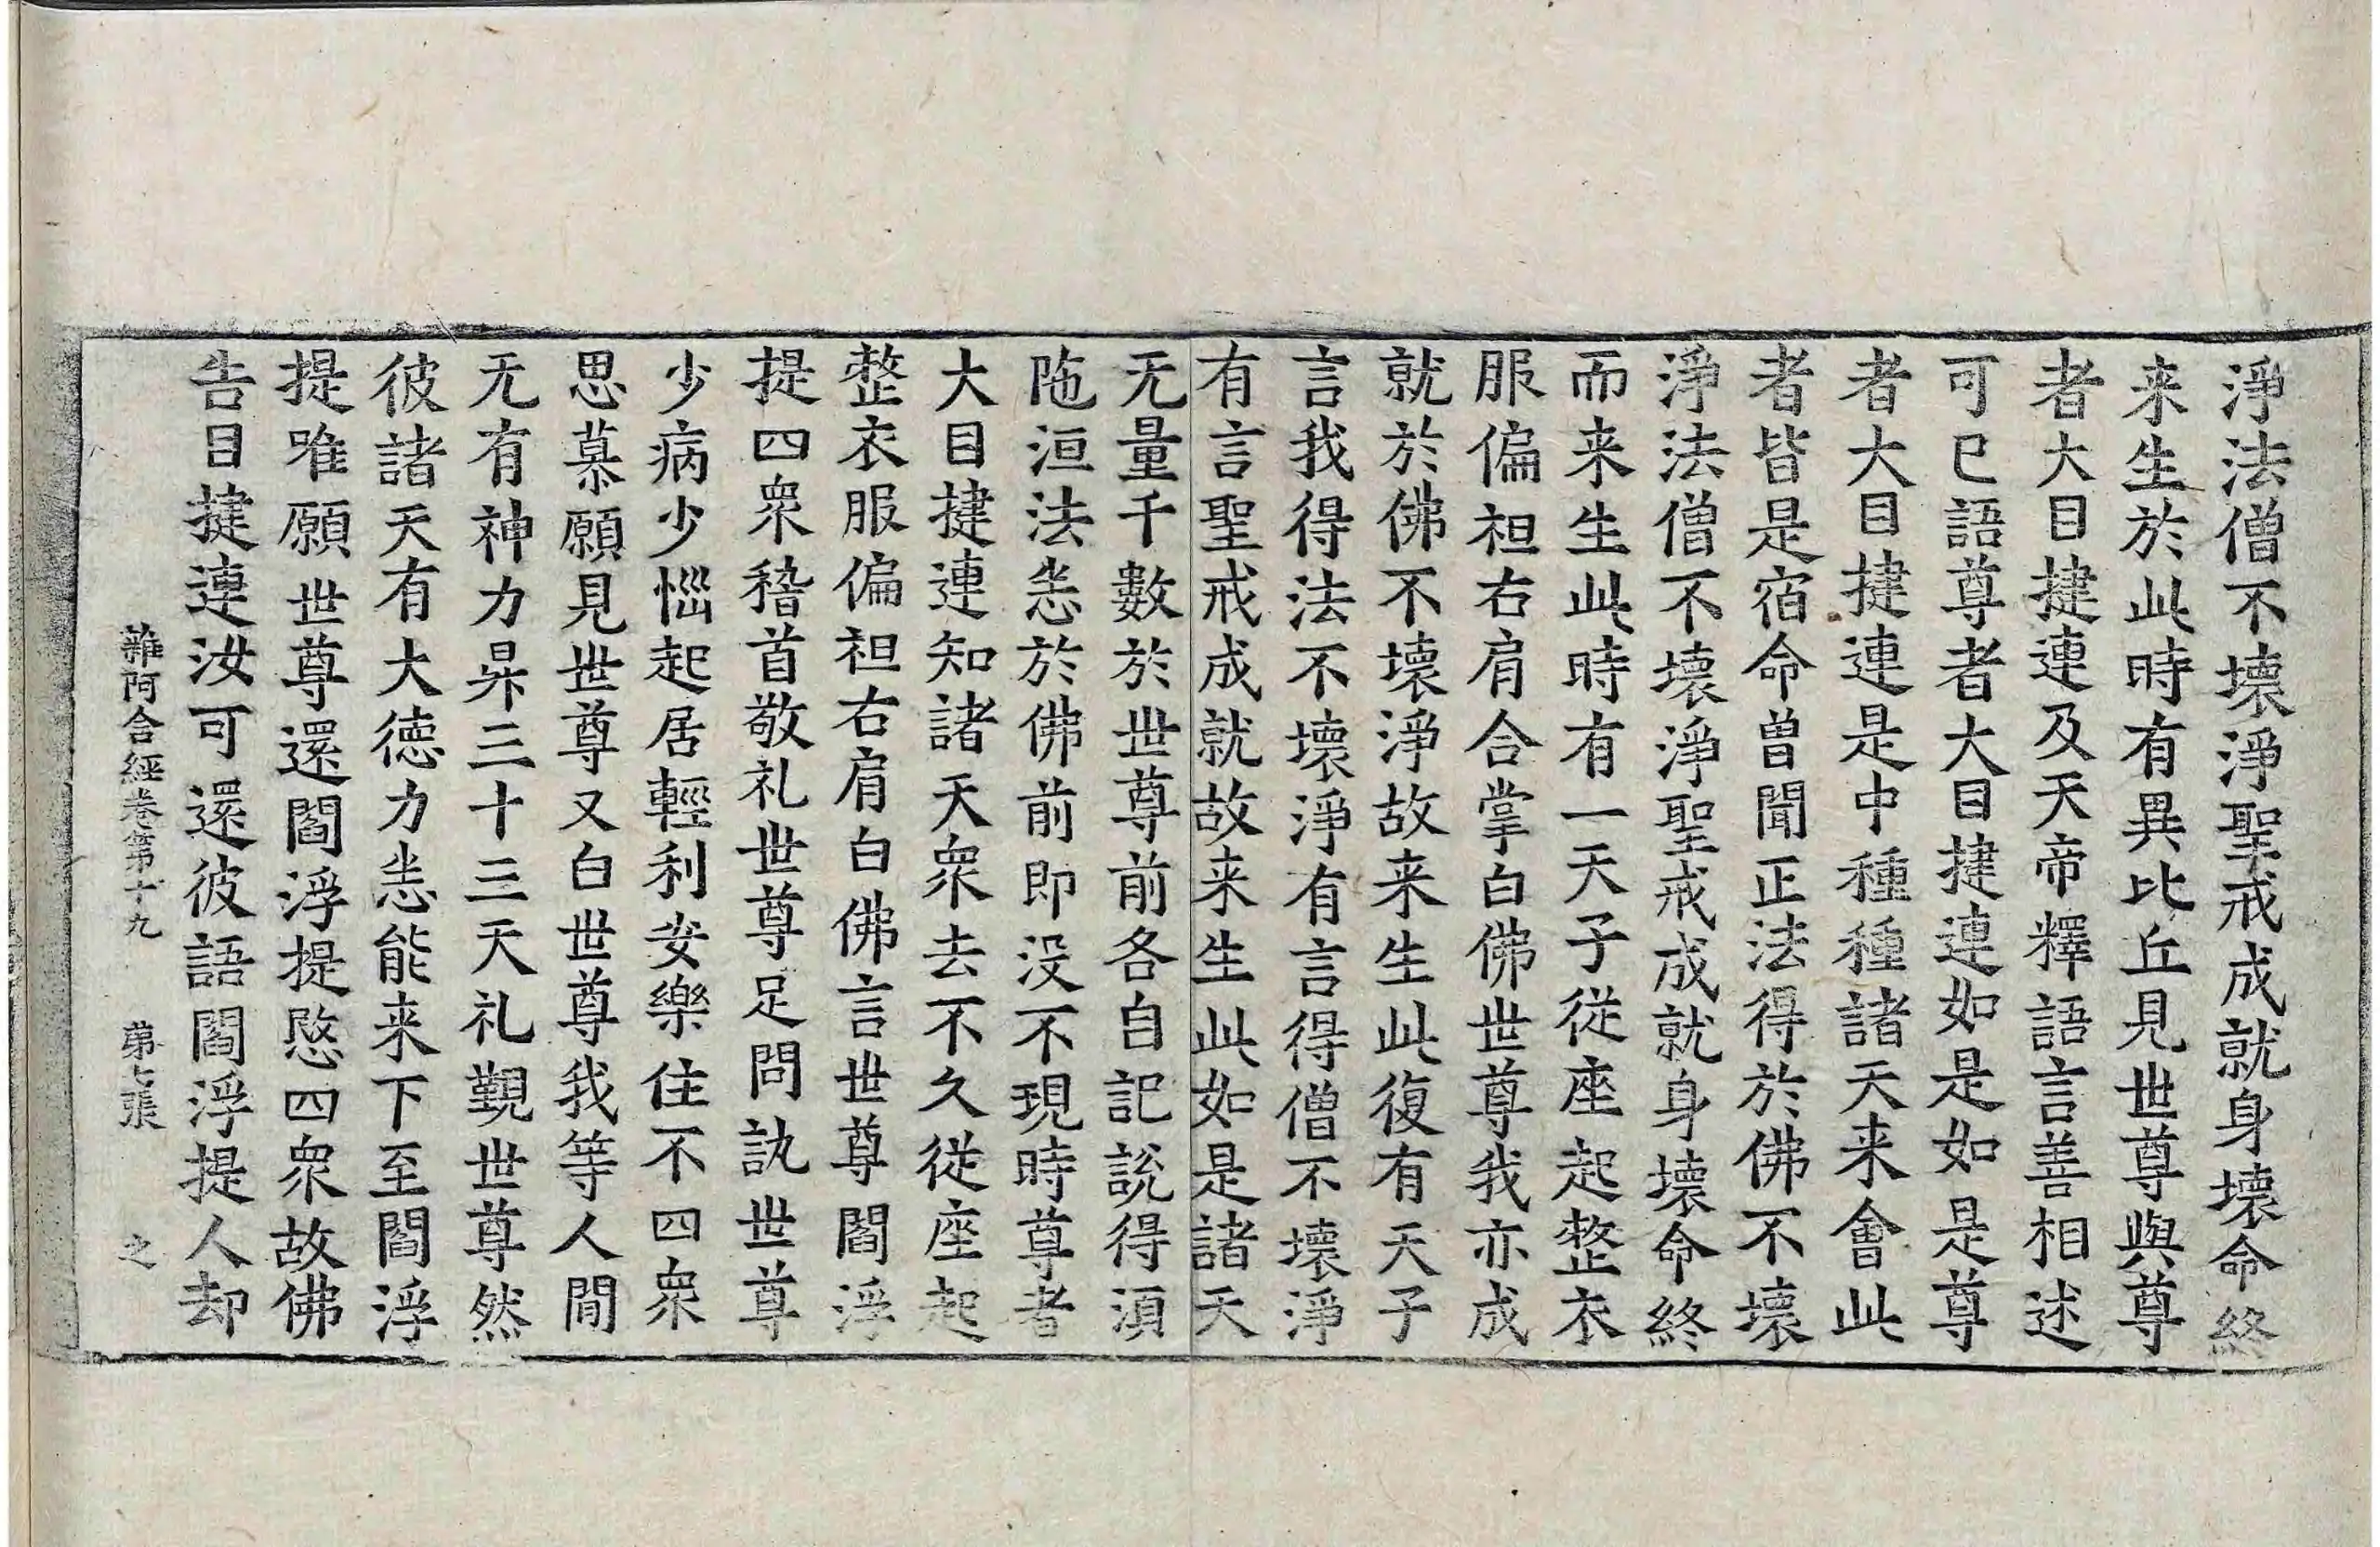 淨法僧不壞淨聖戒成就身壞命終
来生於此時有異比丘見世尊與尊
者大目揵連及天帝釋語言善相述
可已語尊者大目揵連如是如是尊
者大目揵連是中種種諸天来會此
者皆是宿命曾聞正法得於佛不壞
淨法僧不壞淨聖戒成就身壞命終
而来生此時有一天子從座起整衣
服偏袒右肩合掌白佛世尊我亦成
就於佛不壞淨故来生此復有天子
言我得法不壞淨有言得僧不壞淨
有言聖戒成就故来生此如是諸天
无量千數於世尊前各自記說得湏
陁洹法恙於佛前即没不現時尊者
大目揵連知諸天衆去不久從座起
整衣服偏袒右肩白佛言世尊閻浮
提四衆稽首敬礼世尊足問訊世尊
少病少惱起居輕利安樂住不四衆
思慕願見世尊又白世尊我等人間
无有神力昇三十三天礼覲世尊然
彼諸天有大德力恙能来下至閻浮
提唯願世尊還閻浮提愍四衆故佛
告目揵連汝可還彼語閻浮提人却
雜阿含經卷第十九 苐七張 之